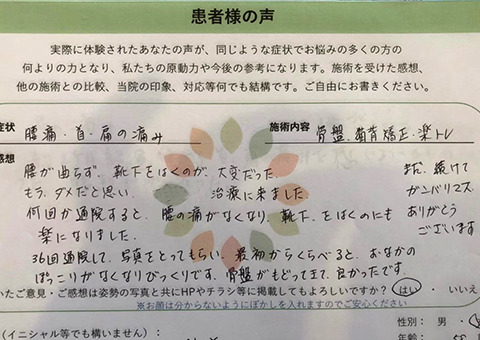 患者様の声
実際に体験されたあなたの声が、同じような症状でお悩みの多くの方の
何よりの力となり、私たちの原動力や今後の参考になります。施術を受けた感想、
他の施術との比較、当院の印象、対応等何でも結構です。ご自由にお書きください。
症状 腰痛・首・肩の痛み 施術内容 骨盤、猫背矯正、楽トレ
感想 腰が曲らず、靴下をはくのが、大変だった。
もう、ダメだと思い 治療に来ました。
何回か通院すると、腰の痛がなくなり、靴下、をはくのにも
楽になりました。
36回通院して、写真をとってもらい、最初からくらべると、おなかの
ぽっこりがなくなりびっくりです。骨盤がもどってきて、良かったです。
まだ、続けて
ガンバリマス。
ありがとう
ございます
いたご意見・ご感想は姿勢の写真と共にHPやチラシ等に掲載してもよろしいですか? はい・いいえ
※お顔は分からないようにぼかしを入れますのでご安心ください
(イニシャル等でも構いません): 性別: 男・
年齢: